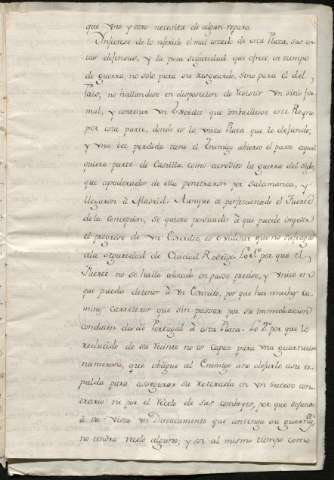 que uno y otro necesita de algun reparo.
Infierese de lo referido el mal estado de esta Plaza, sus cortas defensas, y la poca seguridad que ofrece en tiempo
de guerra, no solo para su resguardo, sino para el del
Pais, no hallandose en disposicion de resistir un sitio for-
mal, y contener un Exercito que intentase este Reyno
por esta parte, donde es la unica Plaza que le defiende,
y una vez perdida tiene el Enemigo abierto el paso aqual
quiera parte de Castilla como acredito la guerra del siglo
que apoderados de ella penetraron por Salamanca, y
llegaron á Madrid. Aunque se perfeccionase el Fuerte
de la Concepcion, se quiere persuadir á que puede impedir
el progreso de un Exercito, es evidente que no sufraga
ála seguridad de Ciudad Rodrigo. Lo 1.º por que el
Fuerte no se halla situado en paso preciso, y unico en
que pueda detener á un Comvoy, por que hai muchos ca-
minos carreteros que sin pasar por su immediacion
conducen desde Portugal á esta Plaza. Lo 2.º por que lo
reducido de su recinto no es capaz para una guarnicion
numerosa, que obligue al Enemigo ano dejarlo ála es-
palda para asegurar su retirada en un suceso con-
trario ni por el recelo de sus comboyes, por que dejando
á su vista un Destacamento que contenga su guarn.on
no tendra recelo alguno, y por al mismo tiempo corto